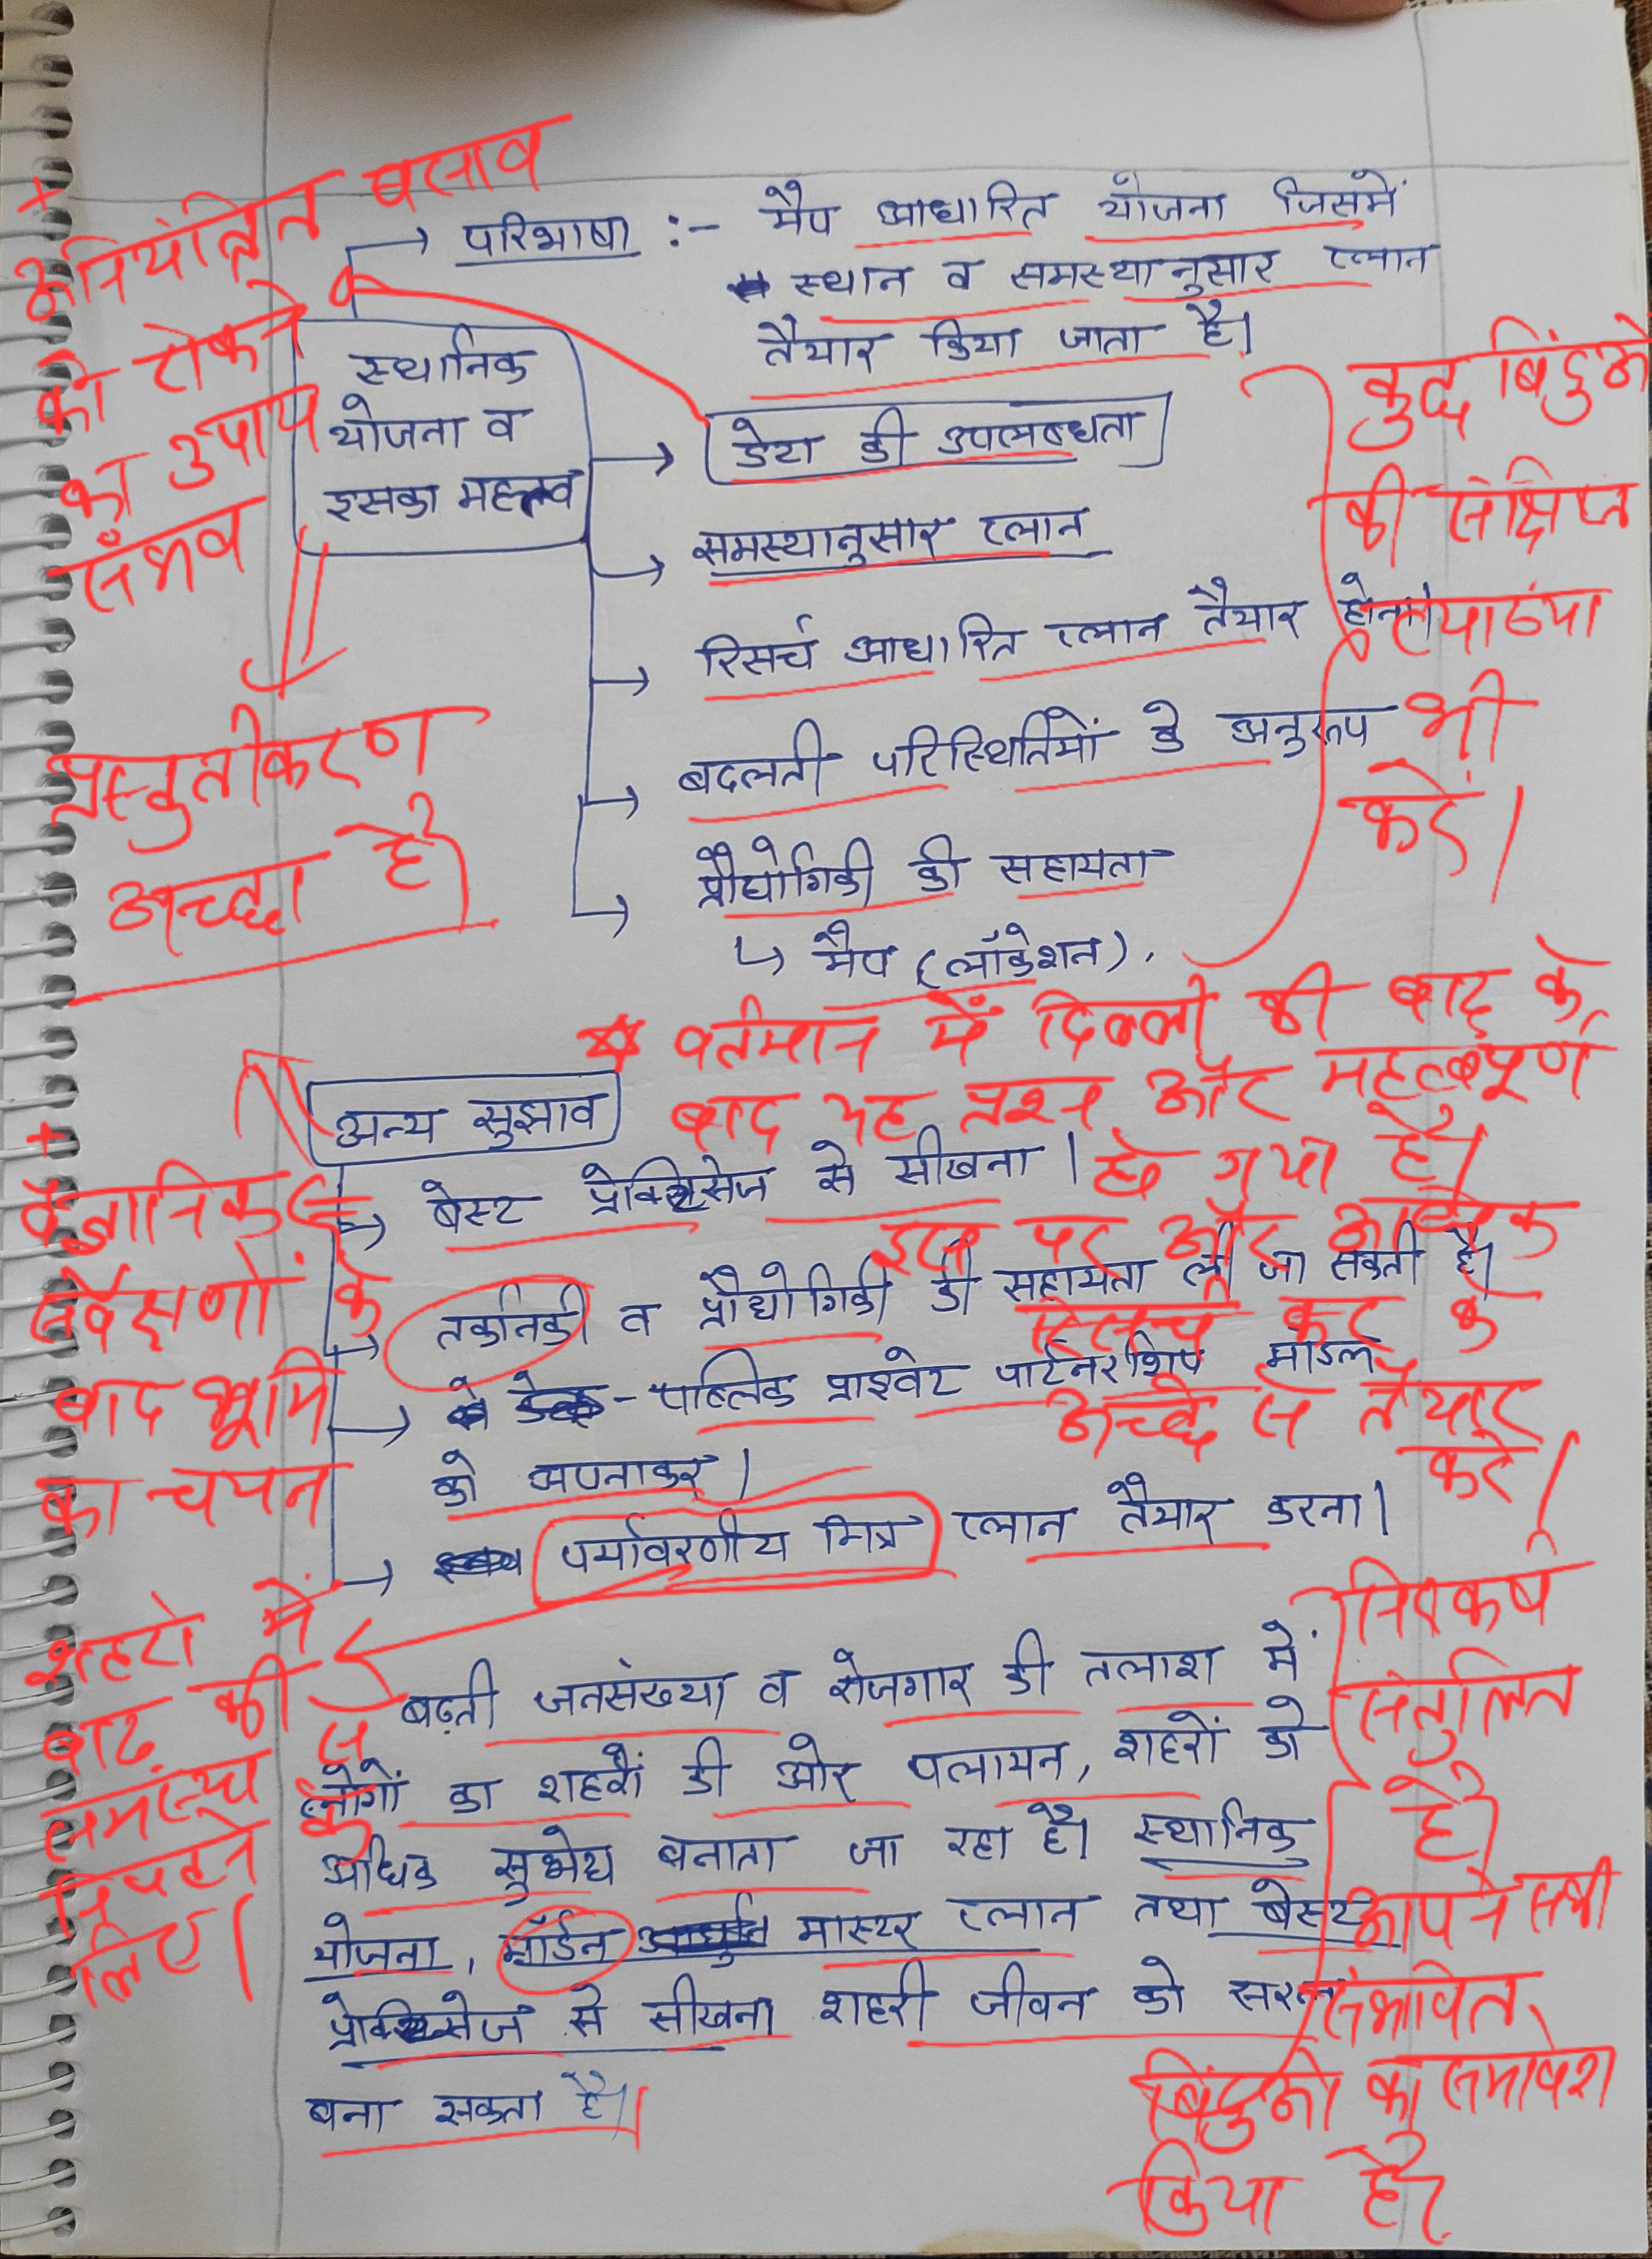 +
अनियंत्रित बसाव
को रोकने
का उपाय
संभव
→ परिभाषा :- मैप आधारित योजना जिसमें
स्थान व समस्यानुसार प्लान
तैयार किया जाता है।
स्थानिक
योजना व
इसका महत्त्व
→ डेटा की उपलब्धता
→ समस्यानुसार प्लान
→ रिसर्च आधारित प्लान तैयार होना।
→ बदलती परिस्थितियों के अनुरूप
→ प्रौद्योगिकी की सहायता
↳ मैप (लॉकेशन),
कुछ बिंदुओं
की संक्षिप्त
व्याख्या
भी
करें।
प्रस्तुतीकरण
अच्छा है।
* वर्तमान में दिल्ली की बाढ़ के
बाद यह प्रश्न और महत्वपूर्ण
हो गया है।
इस पर और अधिक
रिसर्च कर के
अच्छे से तैयार
करें।
अन्य सुझाव
→ बेस्ट प्रेक्टिसेज से सीखना।
→ तकनिकी व प्रौद्योगिकी की सहायता ली जा सकती है।
→ पब्लिक प्राइवेट पार्टनरशिप मॉडल
को अपनाकर।
→ पर्यावरणीय मित्र प्लान तैयार करना।
+
वैज्ञानिक
सर्वेक्षणों के
बाद भूमि
का चयन
शहरों में
बाढ़ की
समस्या से
निपटने के
लिए।
बढ़ती जनसंख्या व रोजगार की तलाश में
लोगों का शहरों की ओर पलायन, शहरों को
अधिक सुभेद्य बनाता जा रहा है। स्थानिक
योजना, मॉर्डन मास्टर प्लान तथा बेस्ट
प्रेक्टिसेज से सीखना शहरी जीवन को सरल
बना सकता है।
निष्कर्ष
संतुलित
है।
आपने सभी
संभावित
बिंदुओं का समावेश
किया है।